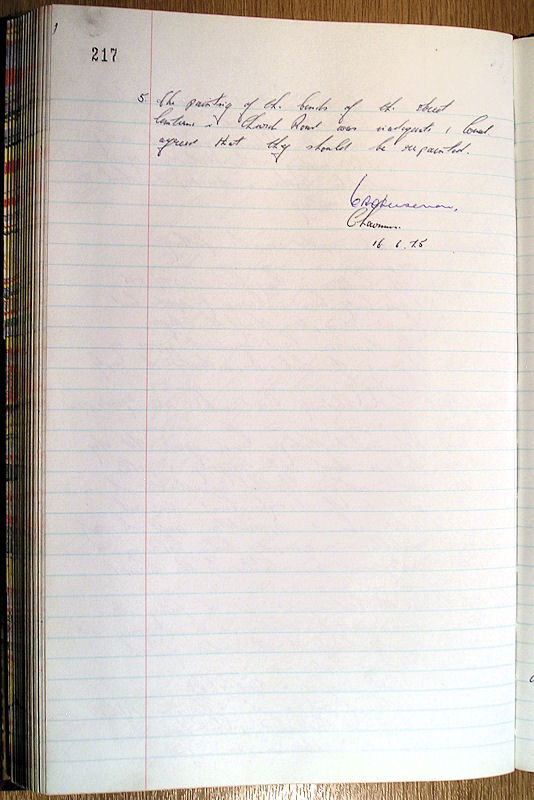 217
5 The painting of the bands of the street
lanterns in Church Road was inadequate,
agreed that they should be repainted.
Chairman.
16.6.75